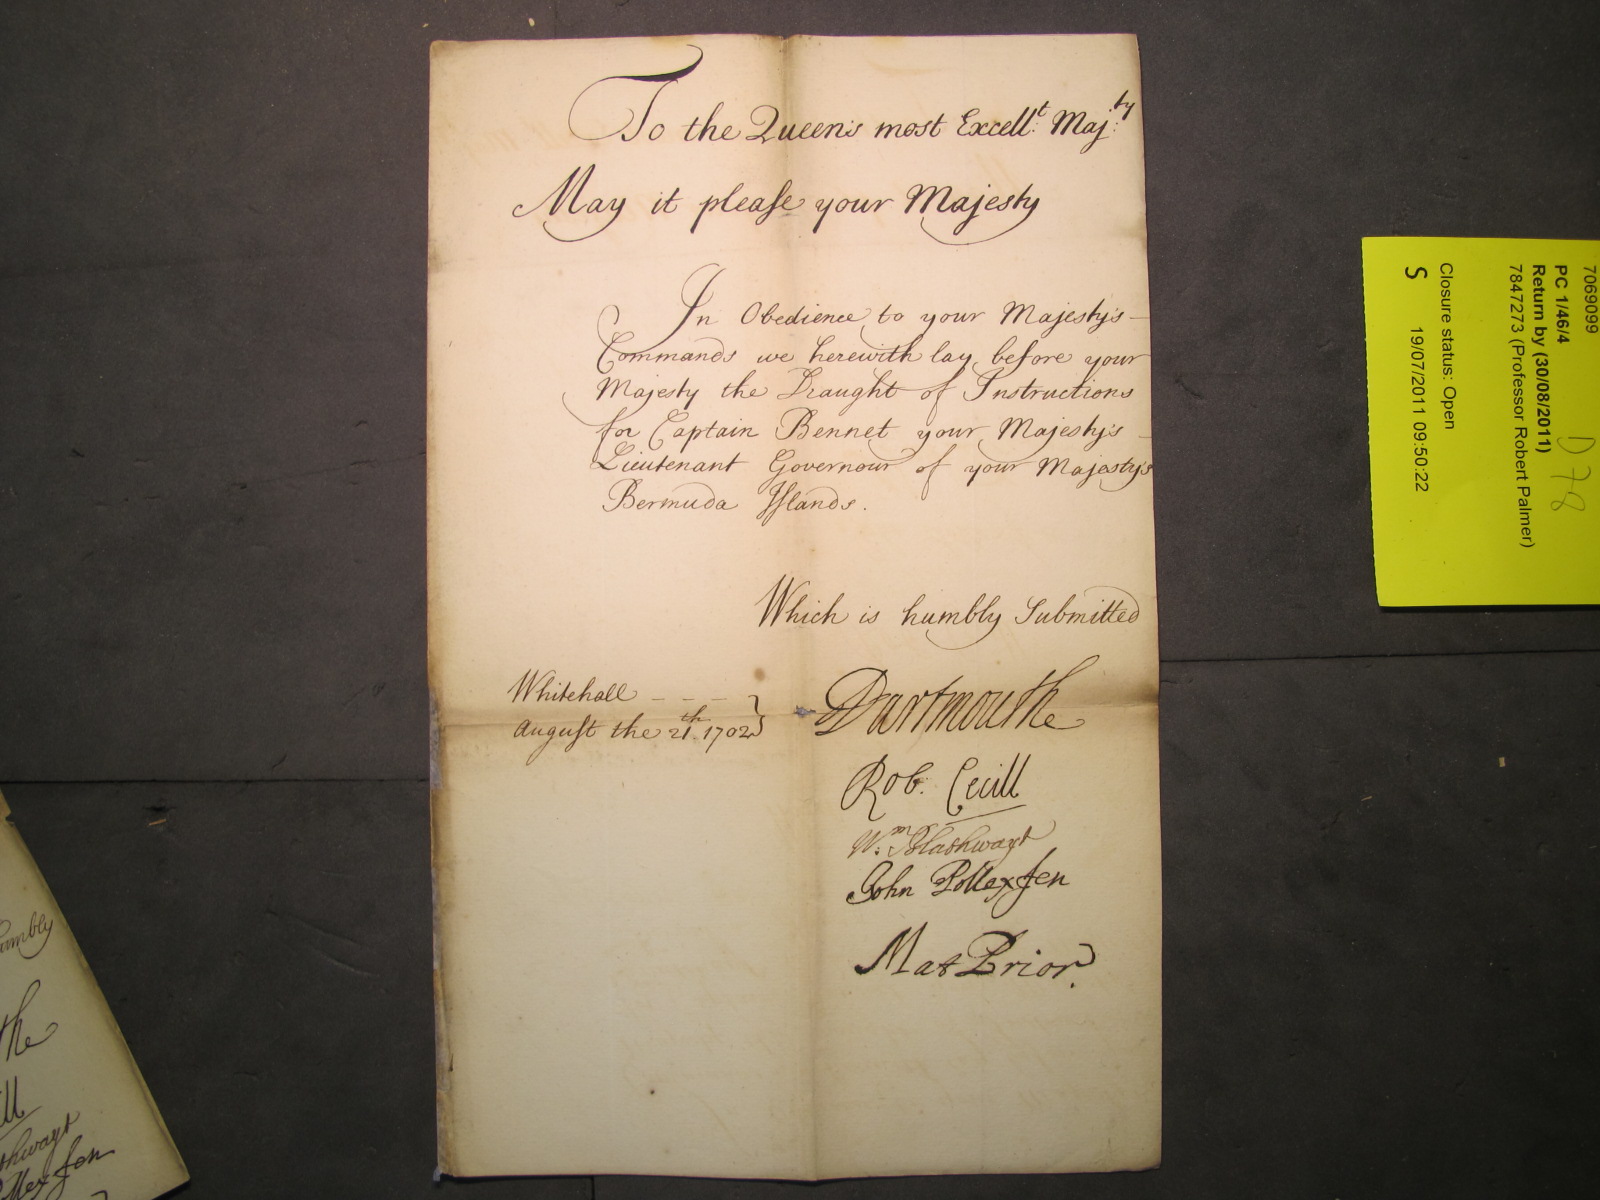 To the Queens most Excell:t Maj:ty
May it please your Majesty
In Obedience to your Majesty's
Commands we herewith lay before your
Majesty the Draught of Instructions
for Captain Bennet your Majesty's
Lieutenant Governour of your Majesty's
Bermuda Islands.
Which is humbly Submitted
Whitehall - - - -
August the 21th. 1702
Dartmouthe
Rob: Cecill
Wm: Blathwayt
John Pollexfen
Mat Prior.
7069099
PC 1/46/4
Return by (30/08/2011)
7847273 (Professor Robert Palmer)
D 78
Closure status: Open
S 19/07/2011 09:50:22
umbly
the
ill
thwayt
ollexfen